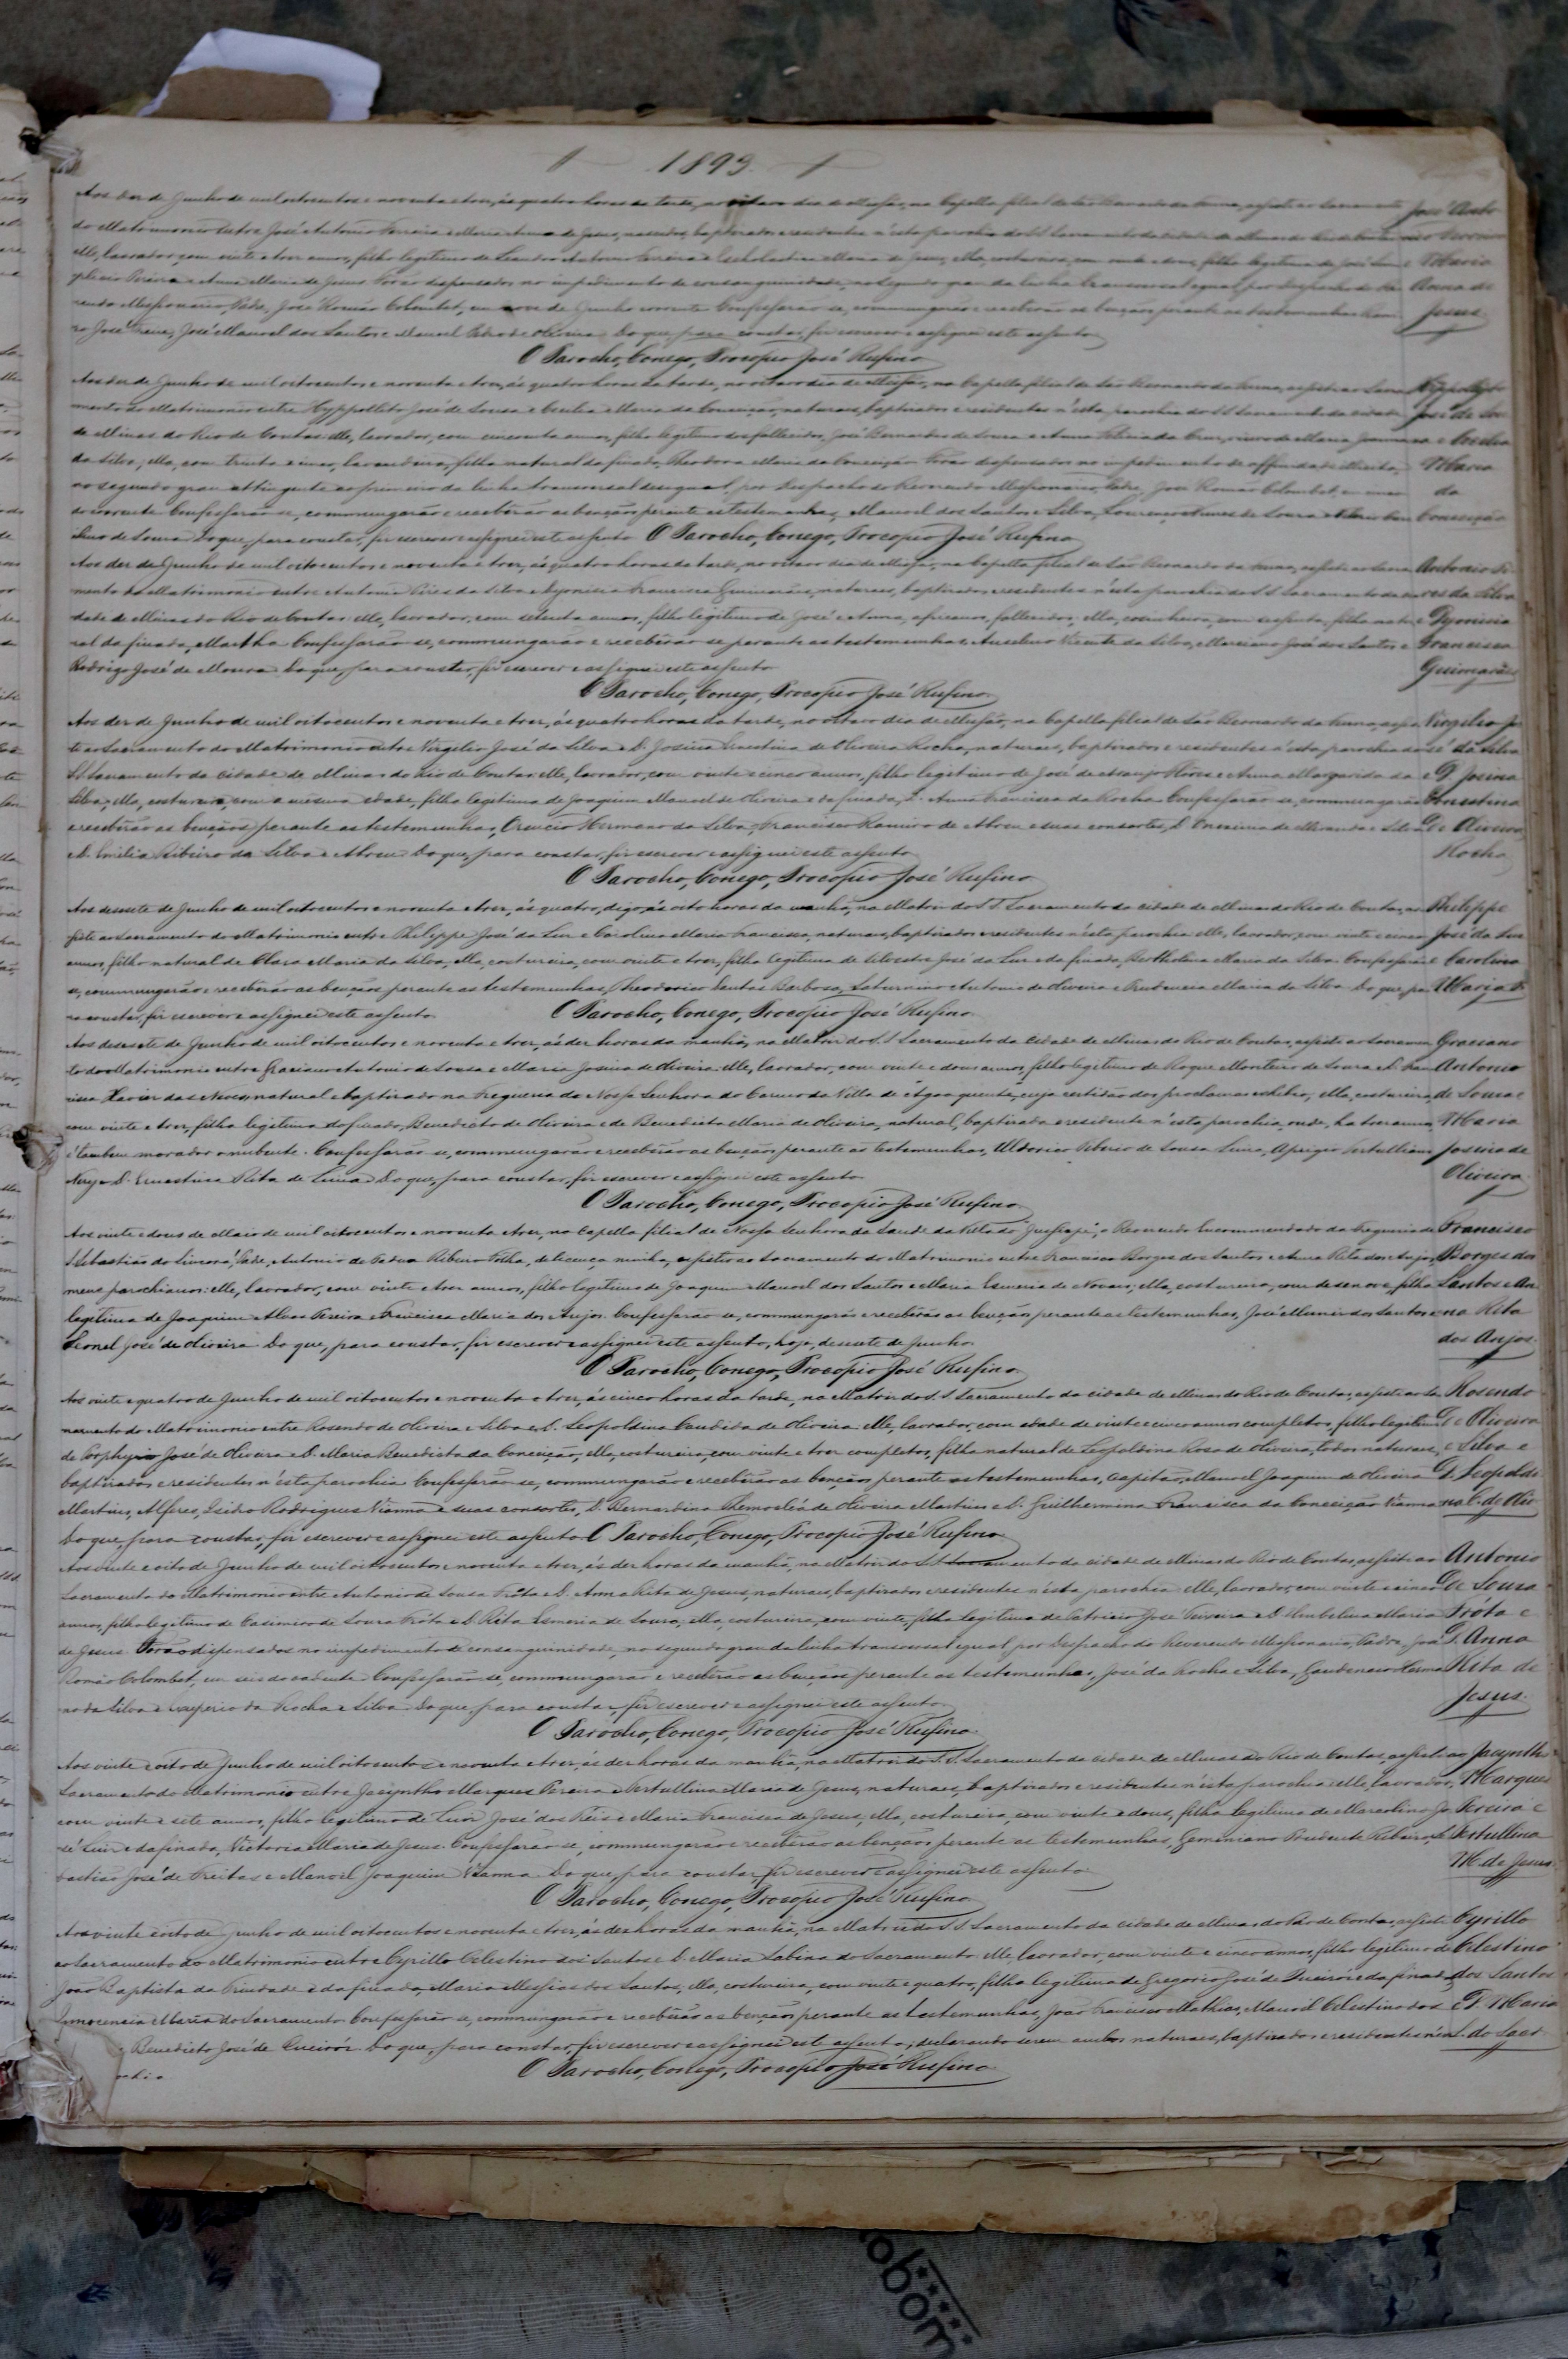 1893
Aos dez de Junho de mil oitocentos e noventa e tres, ás quatro horas da tarde, no oitavo dia de Missão, na Capella filial de São Bernardo da assisti ao Sacramento José Anto
do Matrimonio entre José Antonio Ferreira e Maria Anna de Jesus, naturaes, baptizados e residentes n'esta parochia do SS. Sacramento da cidade de Minas do Rio de Contas nio Ferreira
elle, lavrador, com vinte e tres annos, filho legitimo de Leandro Antonio Ferreira e Escholastica Maria de Jesus, ella, costureira, com vinte e dous, filha legitima de José e Maria
Pereira e Anna Maria de Jesus. Forão dispensados no impedimento de consanguinidade, no segundo grau da linha transversal egual, por Despacho do Re Anna de
rendo Missionario, Padre, José Romão Colombet, em nove de Junho corrente. Confessarão-se, commungarão e receberão as bençãos perante as testemunhas Jesus
José Manoel dos Santos e Manoel Pedro de Oliveira. Do que, para constar, fiz escrever e assignei este assento.
O Parocho, Conego, Procopio José Rufino
Aos dez de Junho de mil oitocentos e noventa e tres, ás quatro horas da tarde, no oitavo dia de Missão, na Capella filial de São Bernardo da assisti ao Sacra Hyppolito
mento do Matrimonio entre Hyppolito José de Sousa e Cecilia Maria da Conceição, naturaes, baptizados e residentes n'esta parochia do SS. Sacramento da cidade José de Sou
de Minas do Rio de Contas: elle, lavrador, com cincoenta annos, filho legitimo dos fallecidos, José Bernardes de Sousa e Anna Felicia da Cruz, viuvo de Maria Joaquina sa e Cecilia
da Silva; ella, com trinta e cinco, lavandeira, filha natural da finada, Theodora Maria da Conceição. Forão dispensados no impedimento de affinidade illicita, Maria
no segundo grau attingente ao primeiro da linha transversal desigual, por Despacho do Reverendo Missionario, Padre, José Romão Colombet, em nove da
do corrente. Confessarão-se, commungarão e receberão as bençãos perante as testemunhas, Manoel dos Santos e Silva, Lourenço Nunes de Sousa e Conceição
de Sousa. Do que, para constar, fiz escrever e assignei este assento. O Parocho, Conego, Procopio José Rufino
Aos dez de Junho de mil oitocentos e noventa e tres, ás quatro horas da tarde, no oitavo dia de Missão, na Capella filial de São Bernardo da assisti ao Sacra Antonio Pi
mento do Matrimonio entre Antonio Pires da Silva e Dyonisia Francisca Guimarães, naturaes, baptizados e residentes n'esta parochia do SS. Sacramento da ci res da Silva
dade de Minas do Rio de Contas: elle, lavrador, com setenta annos, filho legitimo de José e Anna, africanos, fallecidos; ella, cosinheira, com sessenta, filha natu e Dyonisia
ral da finada, Martha. Confessarão-se, commungarão e receberão-se perante as testemunhas, Anselmo Vicente da Silva, Marciano José dos Santos e Francisca
Rodrigo José de Moura. Do que, para constar, fiz escrever e assignei este assento. Guimarães
O Parocho, Conego, Procopio José Rufino
Aos dez de Junho de mil oitocentos e noventa e tres, ás quatro horas da tarde, no oitavo dia de Missão, na Capella filial de São Bernardo da assis Virgilio Jo
ti ao Sacramento do Matrimonio entre Virgilio José da Silva e D. Josina Ernestina de Oliveira Rocha, naturaes, baptizados e residentes n'esta parochia do sé da Silva
SS. Sacramento da cidade de Minas do Rio de Contas: elle, lavrador, com vinte e cinco annos, filho legitimo de José de Araujo Flôres e Anna Margarida da e D. Josina
Silva; ella, costureira, com a mesma edade, filha legitima de Joaquim Manoel de Oliveira e da finada, D. Anna Francisca da Rocha. Confessarão-se, commungarão Ernestina
e receberão as bençãos perante as testemunhas, Hermano da Silva, Francisco Ramiro de Abreu e suas consortes, D. Onesima de Miranda e Silva De Oliveira
e D. Emilia Ribeiro da Silva e Abreu. Do que, para constar, fiz escrever e assignei este assento. Rocha
O Parocho, Conego, Procopio José Rufino
Aos desesete de Junho de mil oitocentos e noventa e tres, ás quatro, digo, ás oito horas da manhã, na Matriz do SS. Sacramento da cidade de Minas do Rio de Contas, as Philippe
sisti ao Sacramento do Matrimonio entre Philippe José da Luz e Carolina Maria Francisca, naturaes, baptizados e residentes n'esta parochia: elle, lavrador, com vinte e cinco José da Luz
annos, filho natural de Clara Maria da Silva; ella, costureira, com vinte e tres, filha legitima de Silvestre José da Luz e da finada, Maria da Silva. Confessarão e Carolina
se, commungarão e receberão as bençãos perante as testemunhas, Theodorico Dantas Barbosa, Saturnino Antonio de Oliveira e Prudencia Maria da Silva. Do que, pa Maria F.
ra constar, fiz escrever e assignei este assento. O Parocho, Conego, Procopio José Rufino
Aos desesete de Junho de mil oitocentos e noventa e tres, ás dez horas da manhã, na Matriz do SS. Sacramento da cidade de Minas do Rio de Contas, assisti ao Sacramen Graciano
to do Matrimonio entre Graciano Antonio de Sousa e Maria Josina de Oliveira: elle, lavrador, com vinte e dous annos, filho legitimo de Roque Monteiro de Sousa e D. Fran Antonio
cisca Xavier das Neves, natural e baptizado na Freguezia de Nossa Senhora do Carmo da Villa de Agoa quente, cuja certidão dos proclamas exhibio; ella, costureira, de Sousa e
com vinte e tres, filha legitima do finado, Benedicto de Oliveira e de Benedicta Maria de Oliveira, natural, baptizada e residente n'esta parochia, onde, ha tres annos, Maria
é tambem morador o nubente. Confessarão-se, commungarão e receberão as bençãos, perante as testemunhas, Uldorico Ribeiro de Sousa Lima, Aprigio Tertulliano Josina de
e D. Ernestina Rita de Lima. Do que, para constar, fiz escrever e assignei este assento. Oliveira
O Parocho, Conego, Procopio José Rufino
Aos vinte e dous de Maio de mil oitocentos e noventa e tres, na Capella filial de Nossa Senhora da Saude da Villa do Jussiape, o Reverendo Encommendado da Freguezia de Francisco
S. Sebastião do Sincorá, Padre, Antonio de Padua Ribeiro Folha, de licença minha, assistio ao Sacramento do Matrimonio entre Francisco Borges dos Santos e Anna Rita dos Anjos, Borges dos
meus parochianos: elle, lavrador, com vinte e tres annos, filho legitimo de Joaquim Manoel dos Santos e Maria Esmeria de Novaes; ella, costureira, com desenove, filha Santos e An
legitima de Joaquim Alves Pereira e Francisca Maria dos Anjos. Confessarão-se, commungarão e receberão as bençãos perante as testemunhas, José Maria dos Santos e na Rita
Leonel José de Oliveira. Do que, para constar, fiz escrever e assignei este assento, hoje, desesete de Junho. dos Anjos.
O Parocho, Conego, Procopio José Rufino
Aos vinte e quatro de Junho de mil oitocentos e noventa e tres, ás cinco horas da tarde, na Matriz do SS. Sacramento da cidade de Minas do Rio de Contas, assisti ao Sa Rosendo
cramento do Matrimonio entre Rosendo de Oliveira e Silva e D. Leopoldina Candida de Oliveira: elle, lavrador, com edade de vinte e cinco annos completos, filho legitimo De Oliveira
de Porphyrio José de Oliveira e D. Maria Benedicta da Conceição; ella, costureira, com vinte e tres completos, filha natural de Leopoldina Rosa de Oliveira, todos naturaes, e Silva e
baptizados e residentes n'esta parochia. Confessarão-se, commungarão e receberão as bençãos perante as testemunhas, Capitão, Manoel Joaquim de Oliveira D. Leopoldi
Martins, Alferes, Isidro Rodrigues Vianna e suas consortes, D. Bernardina de Oliveira Martins e D. Guilhermina Francisca da Conceição Vianna. na C. de Oliv.
Do que, para constar, fiz escrever e assignei este assento. O Parocho, Conego, Procopio José Rufino
Aos vinte e oito de Junho de mil oitocentos e noventa e tres, ás dez horas da manhã, na Matriz do SS. Sacramento da cidade de Minas do Rio de Contas, assisti ao Antonio
Sacramento do Matrimonio entre Antonio de Sousa Fróta e D. Anna Rita de Jesus, naturaes, baptizados e residentes n'esta parochia: elle, lavrador, com vinte e cinco De Sousa
annos, filho legitimo de Casimiro de Sousa Fróta e D. Rita Esmeria de Sousa; ella, costureira, com vinte, filha legitima de Patricio José Teixeira e D. Umbelina Maria Fróta e
de Jesus. Forão dispensados no impedimento de consanguinidade, no segundo grau da linha transversal egual, por Despacho do Reverendo Missionario, Padre, José D. Anna
Romão Colombet, em seis do cadente. Confessarão-se, commungarão e receberão as bençãos perante as testemunhas, José da Rocha e Silva, Gaudencio Herma Rita de
no da Silva e Exuperio da Rocha e Silva. Do que, para constar, fiz escrever e assignei este assento. Jesus.
O Parocho, Conego, Procopio José Rufino
Aos vinte e oito de Junho de mil oitocentos e noventa e tres, ás dez horas da manhã, na Matriz do SS. Sacramento da cidade de Minas do Rio de Contas, assisti ao Jacyntho
Sacramento do Matrimonio entre Jacyntho Marques Pereira e Tertullina Maria de Jesus, naturaes, baptizados e residentes n'esta parochia: elle, lavrador, Marques
com vinte e sete annos, filho legitimo de Luiz José dos Reis e Maria Francisca de Jesus; ella, costureira, com vinte e dous, filha legitima de Marcolino Jo Pereira e
sé Luiz e da finada, Victoria Maria de Jesus. Confessarão-se, commungarão e receberão as bençãos, perante as testemunhas, Geminiano Prudente Ribeiro, Se Tertullina
bastião José de Freitas e Manoel Joaquim Vianna. Do que, para constar, fiz escrever e assignei este assento. M. de Jesus.
O Parocho, Conego, Procopio José Rufino
Aos vinte e oito de Junho de mil oitocentos e noventa e tres, ás dez horas da manhã, na Matriz do SS. Sacramento da cidade de Minas do Rio de Contas, assisti Cyrillo
ao Sacramento do Matrimonio entre Cyrillo Celestino dos Santos e D. Maria Sabina do Sacramento: elle, lavrador, com vinte e cinco annos, filho legitimo de Celestino
João Baptista da Trindade e da finada, Maria Messias dos Santos; ella, costureira, com vinte e quatro, filha legitima de Gregorio José de Queiróz e da finada, dos Santos
Innocencia Maria do Sacramento. Confessarão-se, commungarão e receberão as bençãos perante as testemunhas, João Francisco Mathias, Manoel Celestino dos e D. Maria
Benedicto José de Queiróz. Do que, para constar, fiz escrever e assignei este assento; declarando serem ambos naturaes, baptizados e residentes n'es S. do Sacr.
ochia.
O Parocho, Conego, Procopio José Rufino